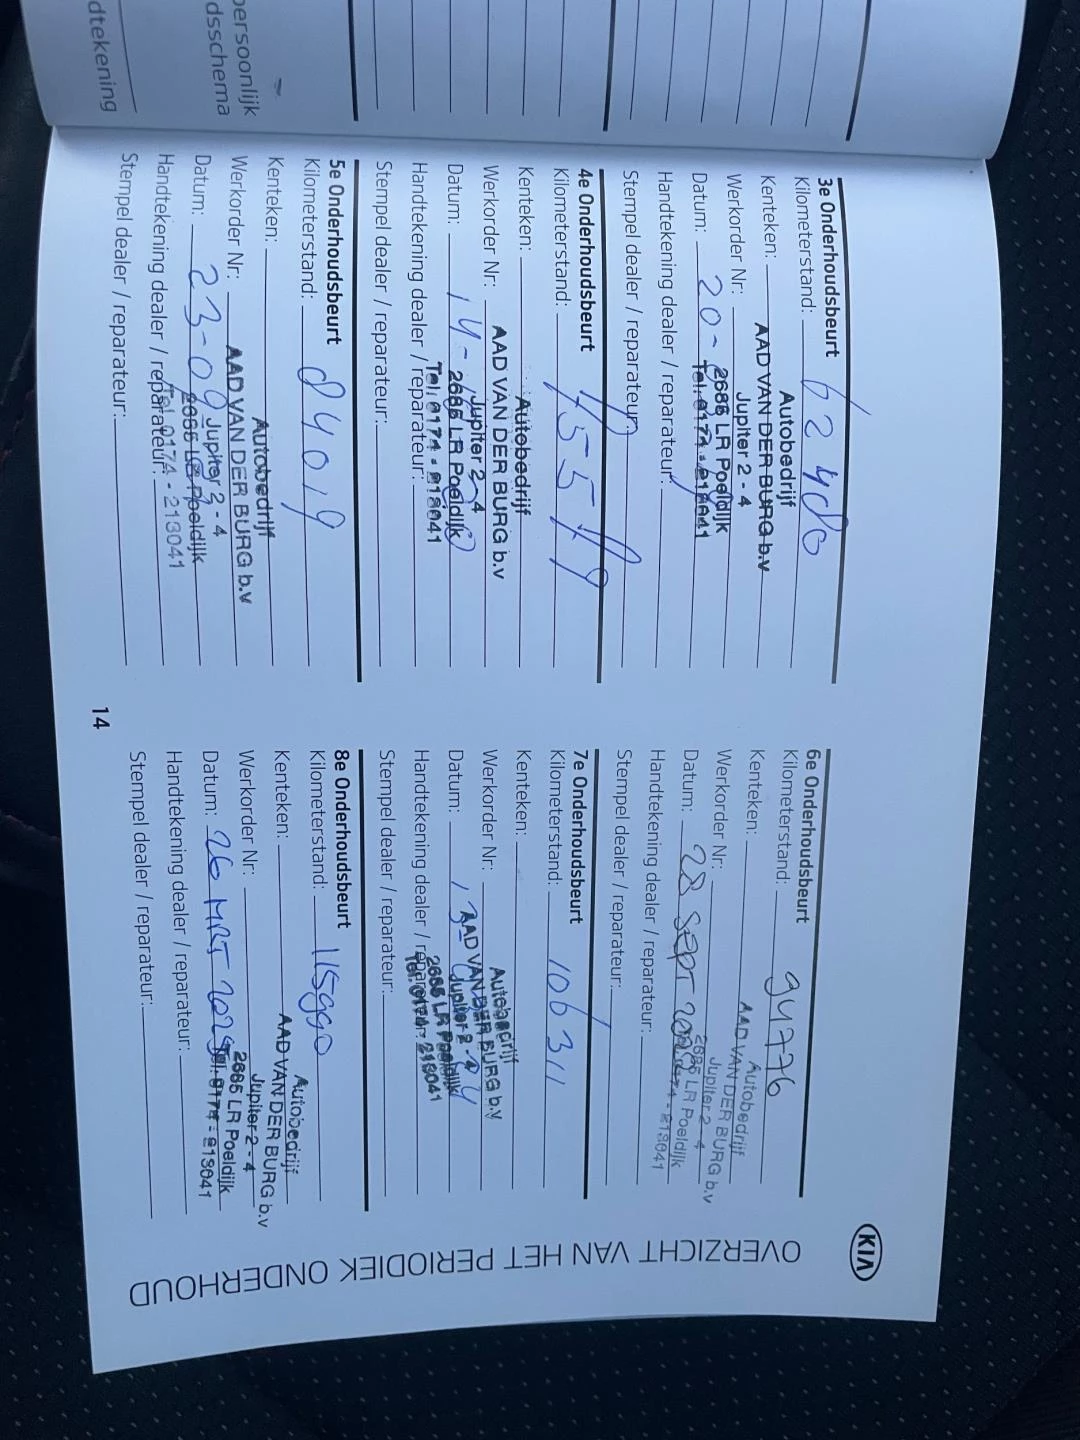 persoonlijk
dsschema
dtekening
3e Onderhoudsbeurt
Kilometerstand: 62480
Autobedrijf
Kenteken:
AAD VAN DER BURG b.v
Werkorder Nr:
Jupiter 2 - 4
2685 LR Poeldijk
Datum: 20-
Tel. 0174 - 213041
Handtekening dealer / reparateur:
Stempel dealer / reparateur:
4e Onderhoudsbeurt
Kilometerstand:
Kenteken:
Autobedrijf
AAD VAN DER BURG b.v
Werkorder Nr:
Jupiter 2 - 4
2685 LR Poeldijk
Datum: 14-
Tel. 0174 - 213041
Handtekening dealer / reparateur:
Stempel dealer / reparateur:
5e Onderhoudsbeurt
Kilometerstand: 84019
Kenteken:
Autobedrijf
AAD VAN DER BURG b.v
Werkorder Nr:
Jupiter 2 - 4
2685 LR Poeldijk
Datum: 23-09-
Tel. 0174 - 213041
Handtekening dealer / reparateur:
Stempel dealer / reparateur:
14
6e Onderhoudsbeurt
Kilometerstand: 94776
Kenteken:
Autobedrijf
AAD VAN DER BURG b.v
Werkorder Nr:
Jupiter 2 - 4
2685 LR Poeldijk
Datum: 28 SEPT
Tel. 0174 - 213041
Handtekening dealer / reparateur:
Stempel dealer / reparateur:
7e Onderhoudsbeurt
Kilometerstand: 106311
Kenteken:
Autobedrijf
AAD VAN DER BURG b.v
Werkorder Nr:
Jupiter 2 - 4
2685 LR Poeldijk
Datum:
Tel. 0174 - 213041
Handtekening dealer / reparateur:
Stempel dealer / reparateur:
8e Onderhoudsbeurt
Kilometerstand: 115990
Autobedrijf
Kenteken:
AAD VAN DER BURG b.v
Werkorder Nr:
Jupiter 2 - 4
2685 LR Poeldijk
Datum: 26 MRT 2025
Tel. 0174 - 213041
Handtekening dealer / reparateur:
Stempel dealer / reparateur:
KIA
OVERZICHT VAN HET PERIODIEK ONDERHOUD